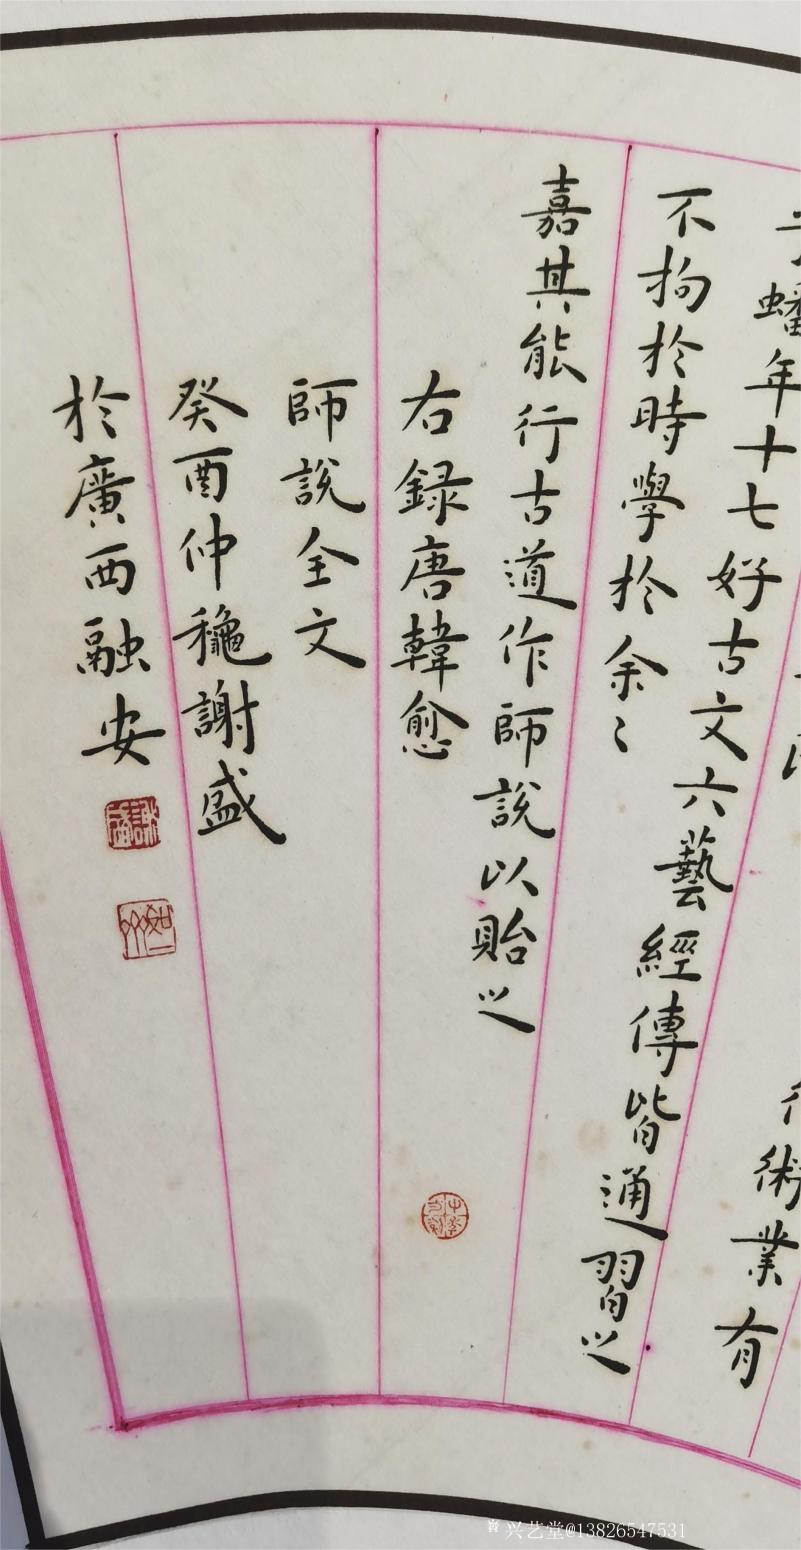 術業有
蟠年十七好古文六藝經傳皆通習之
不拘於時學於余〻
嘉其能行古道作師說以貽之
右録唐韓愈
師說全文
癸酉仲龝謝盛
於廣西融安
謝盛
兴艺堂@13826547531